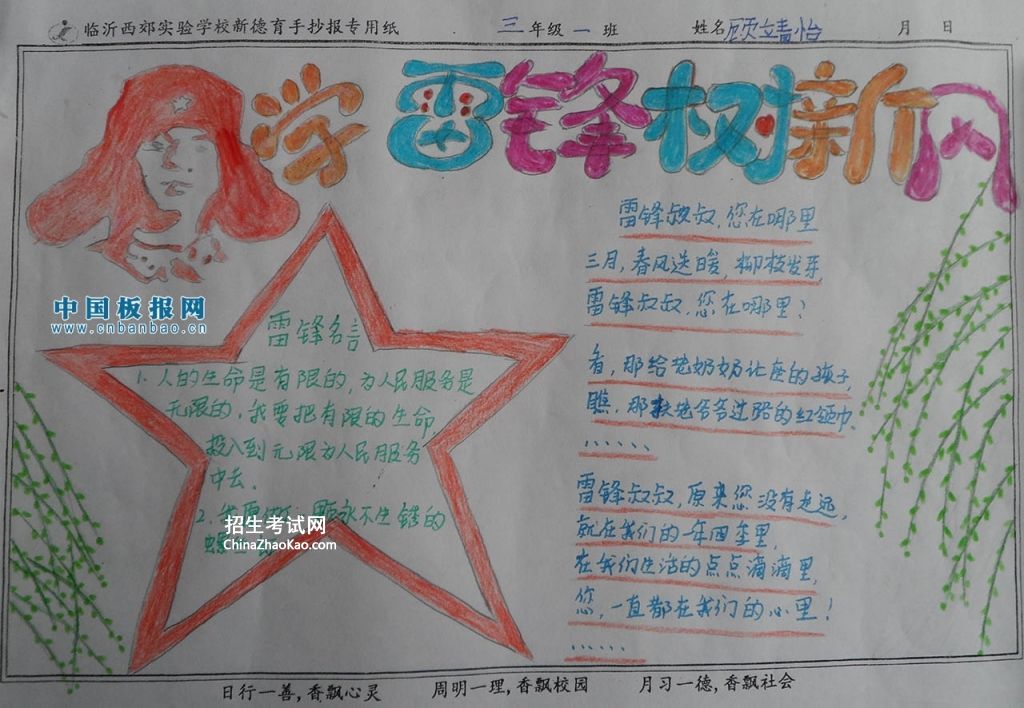 临沂西郊实验学校新德育手抄报专用纸 三年级一班 姓名顾靖怡 月 日
学雷锋树新风
中国板报网
www.cnbanbao.cn
雷锋名言
1. 人的生命是有限的,为人民服务是
无限的,我要把有限的生命
投入到无限为人民服务
中去.
2. 永不生锈的
招生考试网
ChinaZhaoKao.com
雷锋叔叔,您在哪里
三月,春风送暖,柳枝发芽,
雷锋叔叔,您在哪里?
看,那给老奶奶让座的孩子,
瞧,那扶老爷爷过路的红领巾、
......
雷锋叔叔,原来您没有走远,
就在我们的一年四季里,
在我们生活的点点滴滴里,
您,一直都在我们的心里!
......
日行一善,香飘心灵 周明一理,香飘校园 月习一德,香飘社会